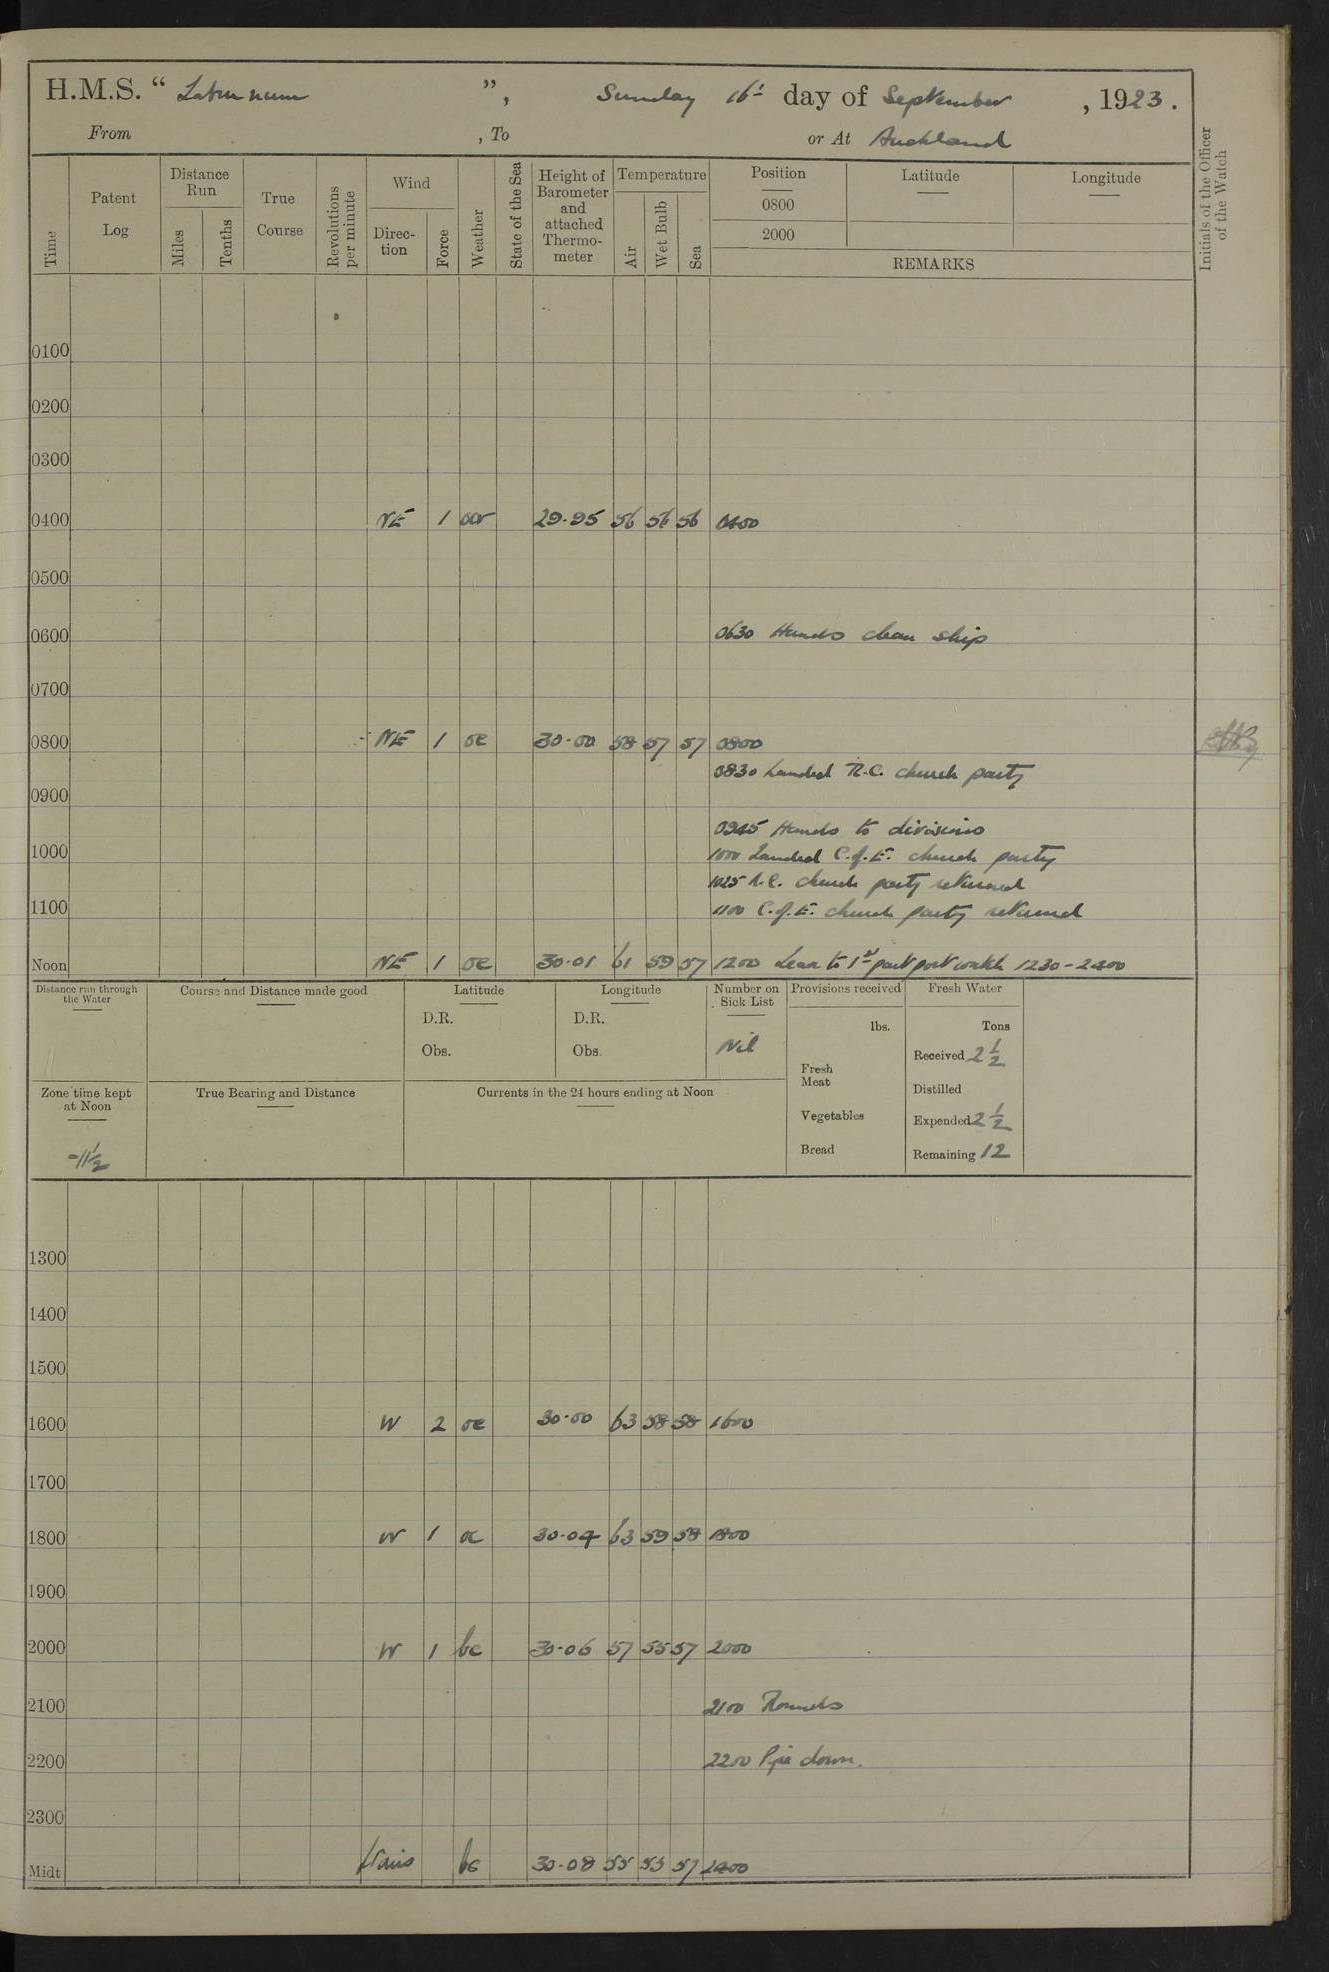 H.M.S. “ Laburnum ”, Sunday 16th day of September, 1923.
From , To or At Auckland
Time
Patent Log
Distance Run
Miles
Tenths
True Course
Revolutions per minute
Wind
Direc-tion
Force
Weather
State of the Sea
Height of Barometer and attached Thermo-meter
Temperature
Air
Wet Bulb
Sea
Position
0800
2000
Latitude
Longitude
REMARKS
Initials of the Officer of the Watch
0100
0200
0300
0400 NE 1 oor 29.95 56 56 56 0400
0500
0600 0630 Hands clean ship
0700
0800 NE 1 oc 30.00 58 57 57 0800
0830 Landed R.C. church party
0900
0945 Hands to divisions
1000 1000 Landed C.of.E. church party
1025 R.C. church party returned
1100 1100 C.of.E. church party returned
Noon NE 1 oc 30.01 61 59 57 1200 Leave to 1st part port watch 1230-2400
Distance run through the Water
Course and Distance made good
Latitude
D.R.
Obs.
Longitude
D.R.
Obs.
Number on Sick List
Nil
Provisions received
lbs.
Fresh Meat
Vegetables
Bread
Fresh Water
Tons
Received 2½
Distilled
Expended 2½
Remaining 12
Zone time kept at Noon
-11½
True Bearing and Distance
Currents in the 24 hours ending at Noon
1300
1400
1500
1600 W 2 oc 30.00 63 58 58 1600
1700
1800 W 1 oc 30.04 63 59 58 1800
1900
2000 W 1 bc 30.06 57 55 57 2000
2100 2100 Rounds
2200 2200 Pipe down.
2300
Midt bc 30.08 55 53 57 2400